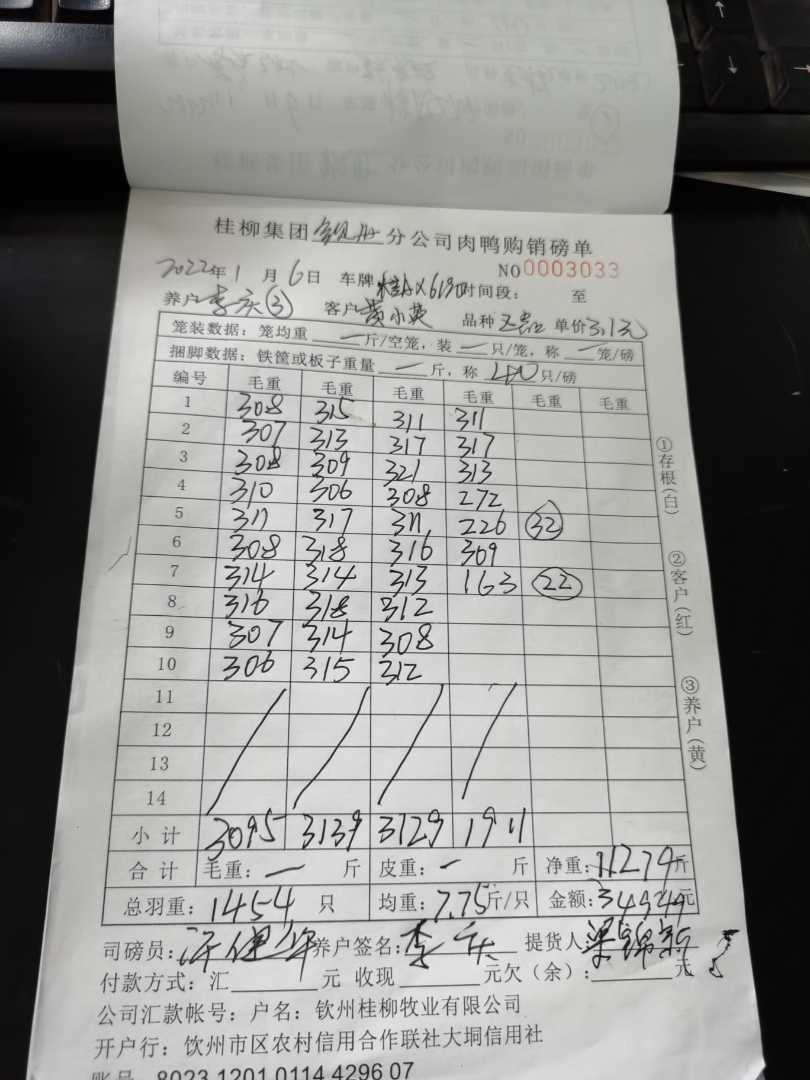 桂柳集团钦州分公司肉鸭购销磅单
NO0003033
2022年1月6日 车牌 时间段: 至
养户 李庆③ 客户 黄小英 品种 单价3.1元
笼装数据: 笼均重 一 斤/空笼, 装 一 只/笼, 称 一 笼/磅
捆脚数据: 铁筐或板子重量 一 斤, 称 40 只/磅
编号 毛重 毛重 毛重 毛重 毛重 毛重
1 308 315 311 311
2 307 313 317 317
3 308 309 321 313
4 310 306 308 272
5 311 317 311 226 32
6 308 318 316 309
7 314 314 313 163 22
8 316 318 312
9 307 314 308
10 306 315 312
11
12
13
14
小计 3095 3139 3129 1911
合计 毛重: 一 斤 皮重: 一 斤 净重: 11274斤
总羽重: 1454 只 均重: 7.75斤/只 金额: 34949元
司磅员: 养户签名: 李庆 提货人 梁锦
付款方式: 汇 元 收现 元欠(余): 元
公司汇款帐号: 户名: 钦州桂柳牧业有限公司
开户行: 钦州市区农村信用合作联社大垌信用社
账号 8023 1201 0114 4296 07
①存根(白)
②客户(红)
③养户(黄)